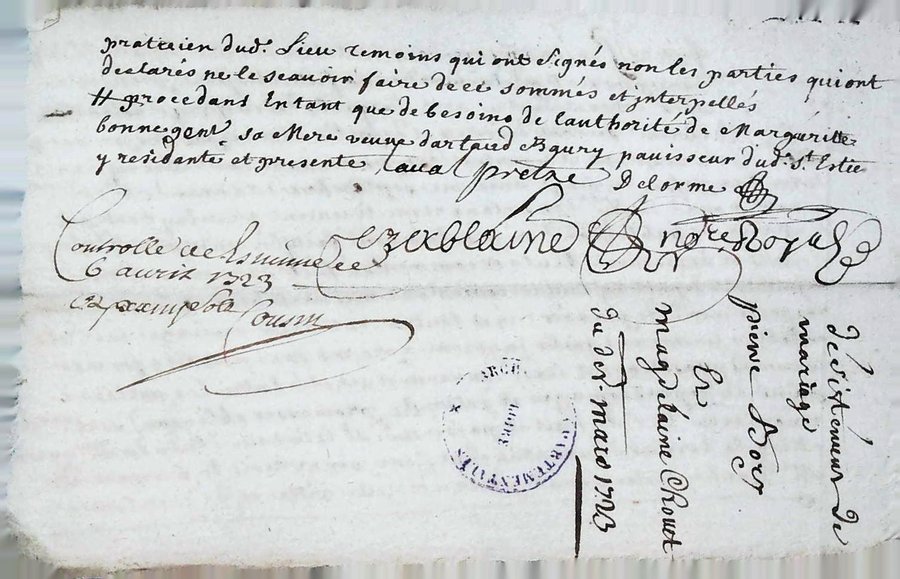 praticien dud. Lieu temoins qui ont signés non les parties qui ont
declarés ne le sçavoir faire de ce sommés et interpellés
# procedans En tant que de besoins de l'authorité de Margueritte
bonnegent sa Mere veuve d'artaud Boury pauisseur dud. St. Estie
y residante et presente, Laval prêtre Delorme
Royal
Controlle a
6 avril 1723
Cousin
désistement de
mariage
pierre Bory
Et
Magdelaine Chouet
du der. mars 1723
ARCH. DÉPARTEMENTALES
LOIRE